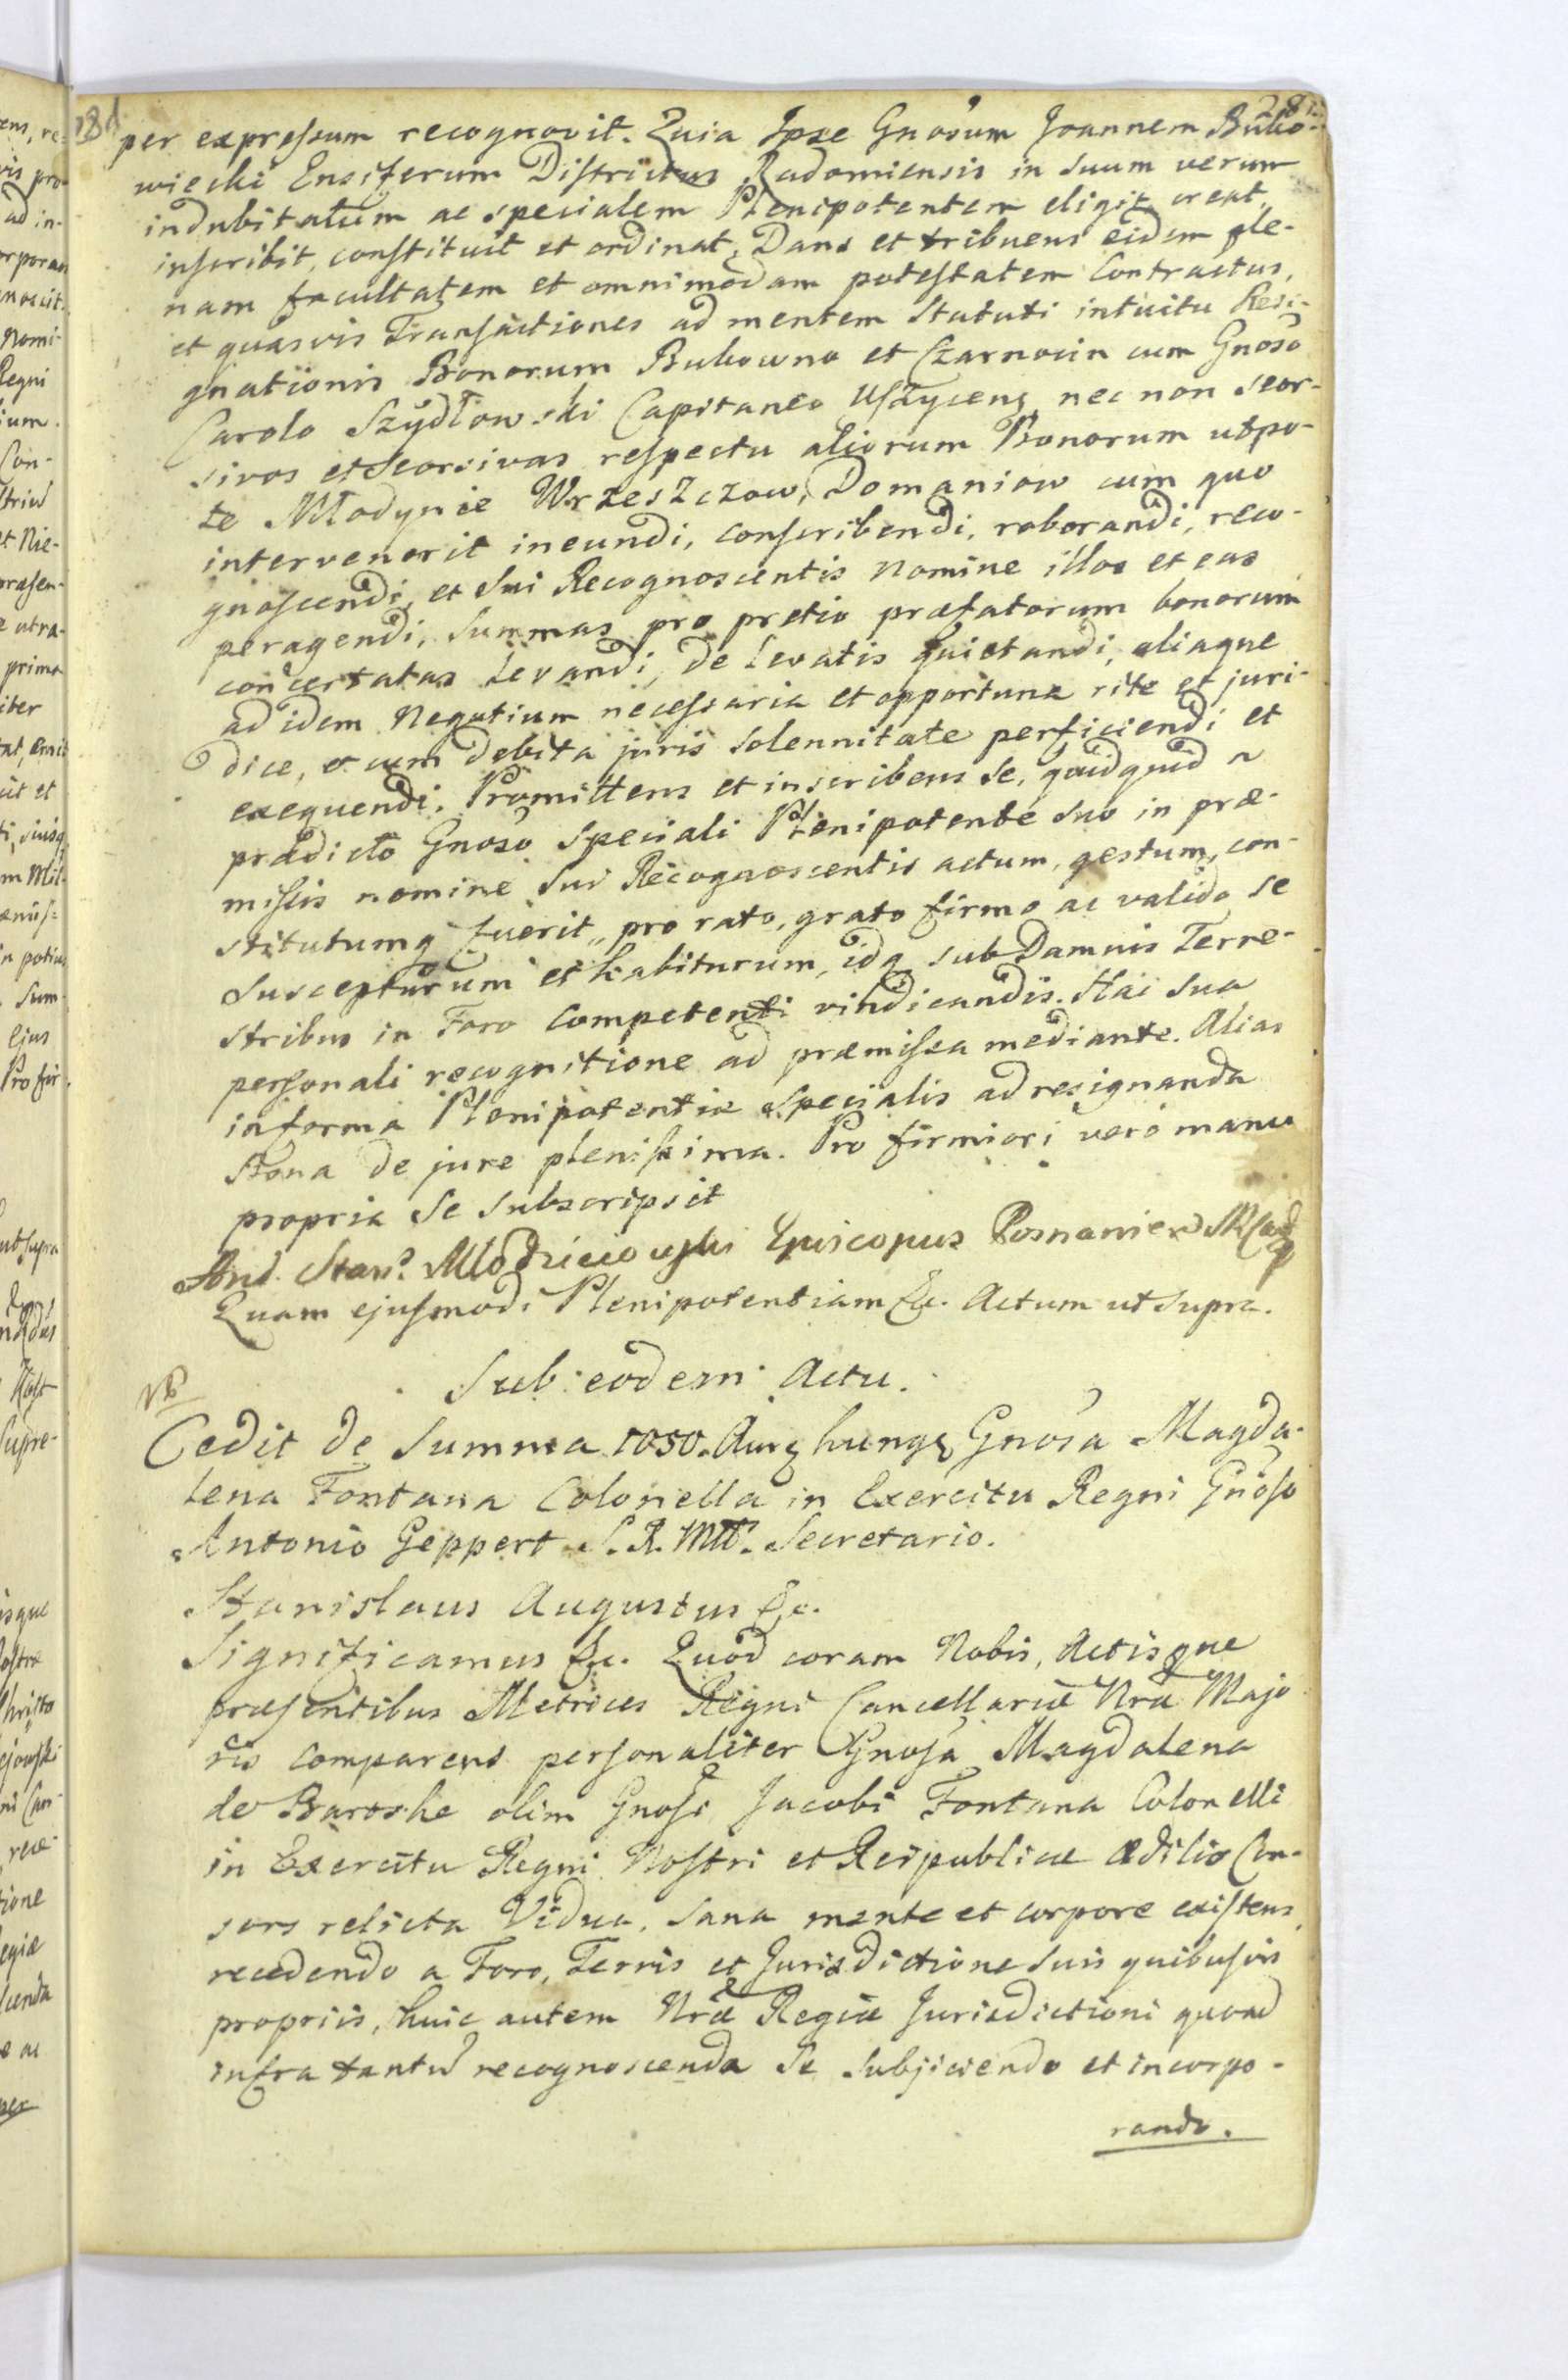 per expressum recognovit. Quia Ipse Gnosum Joannem Buko-
wiecki Ensiferum Districtus Radomiensis in suum verum
indubitatum ac specialem Plenipotentem eligit creat,
inscribit, constituit et ordinat, Dans et tribuens eidem ple-
nam facultatem et omnimodam potestatem Contractus,
et quasvis Transactiones ad mentem Statuti intuitu Resi-
gnationis Bonorum Bukowno et Czarnocin cum Gnoso
Carolo Szydłowski Capitaneo Ustycens, nec non seor-
sivos et seorsivas respectu aliorum Bonorum utpo-
te Młodynie Wrzeszczow, Domaniow cum quo
intervenerit ineundi, conscribendi, roborandi, reco-
gnoscendi, et sui Recognoscentis nomine illos et eas
peragendi, Summas pro pretio præfatorum bonorum
concertatas Levandi, de Levatis quietandi, aliaque
ad idem Negotium necessaria et opportuna rite et juri-
dice, et cum debita juris solennitate perficiendi et
exequendi. Promittens et inscribens se, quidquid
prædicto Gnoso Speciali Plenipotente suo in præ-
missis nomine sui Recognoscentis actum, gestum, con-
stitutumq fuerit, pro rato, grato firmo ac valido se
suscepturum et habiturum, idq sub Damnis Terre-
stribus in Foro Competenti vindicandis. Hac sua
personali recognitione ad præmissa mediante. Alias
in forma Plenipotentiæ specialis ad resignanda
Bona de jure plenissima. Pro firmiori vero manu
propria se subscripsit
And. Stan. Młodzieiowski Episcopus Posnanien
Quam ejusmodi Plenipotentiam &c. Actum ut supra.
Sub eodem Actu.
NB
Cedit de Summa 1050. Aur hung Gnosa Magda-
lena Fontana Colonella in Exercitu Regni Gnoso
Antonio Geppert S. R. Mtt. Secretario.
Stanislaus Augustus &c.
Significamus &c. Quod coram Nobis, Actisque
præsentibus Metrices Regni Cancellariæ Nræ Majo
ris comparens personaliter Gnosa Magdalena
de Baroshe olim Gnosi Jacobi Fontana Colonelli
in Exercitu Regni Nostri et Reipublicæ Ædilis Con-
sors relicta Vidua, sana mente et corpore existens,
recedendo a Foro, Terris et Jurisdictione suis quibusvis
propriis, huic autem Nræ Regiæ Jurisdictioni quoad
infra tantu recognoscenda se subjiciendo et incorpo-
rando.